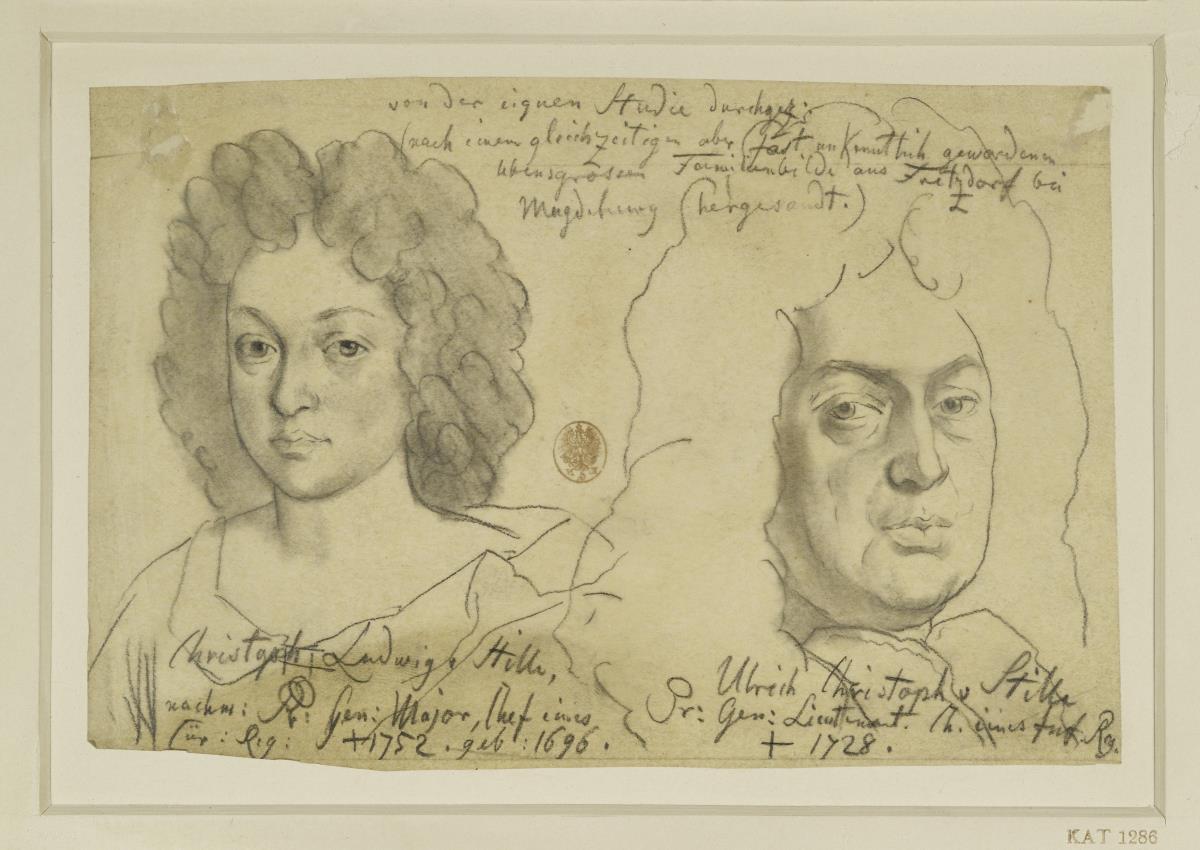 von der eignen Studie durchgez:
(nach einem gleichzeitigen aber fast unkenntlich gewordenen
lebensgrossen Familienbilde aus
bei
Magdeburg hergesandt.)
Christoph Ludwig v Stille,
nachm: Pr: Gen: Major, Chef eines
Cür: Reg: † 1752. geb: 1696.
Ulrich Christoph v Stille
Pr: Gen: Lieutenant. Ch. eines Inf. Reg.
† 1728.
KAT 1286